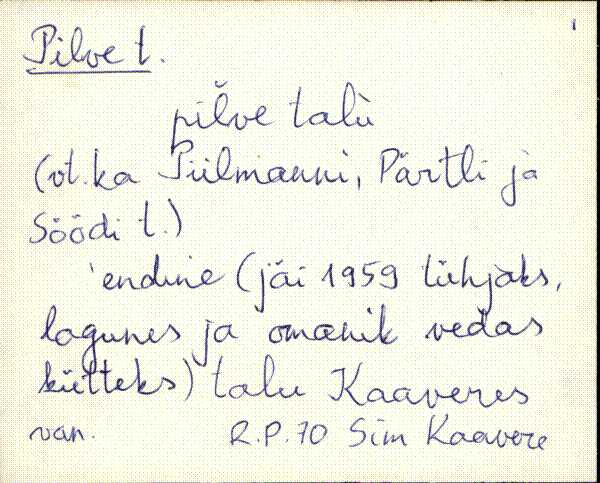 Pilve t.
pilve talu
(vt. ka Piilmanni, Pärtli ja
Söödi t.)
'endine (jäi 1959 tühjaks,
lagunes ja omanik vedas
kütteks) talu Kaaveres
van. R.P. 70 Sim Kaavere